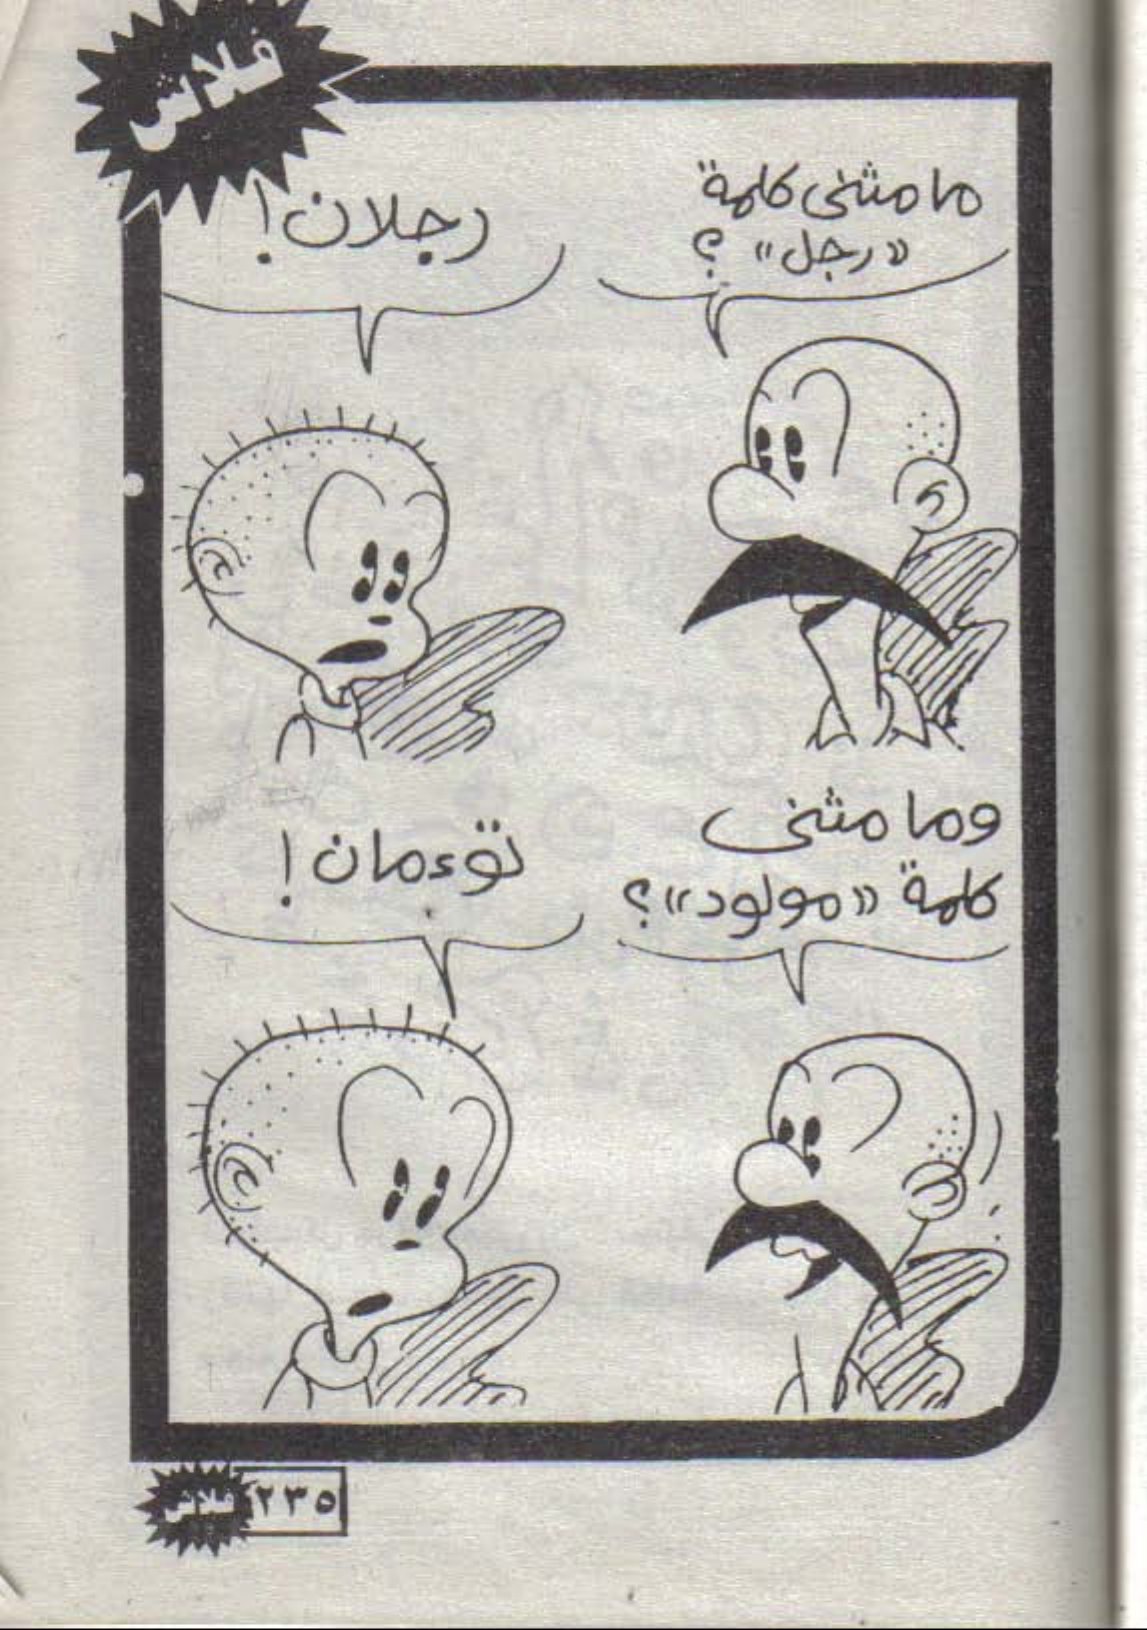 فلاش
ما مثنى كلمة
«رجل» ؟
رجلان !
وما مثنى
كلمة «مولود» ؟
توءمان !
فلاش ٢٣٥